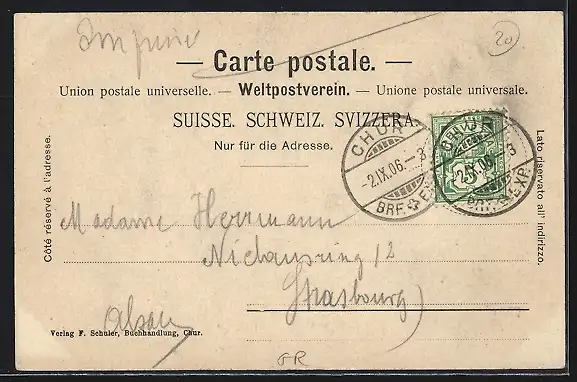 Imprimé
20
— Carte postale. —
Union postale universelle. — Weltpostverein. — Unione postale universale.
SUISSE. SCHWEIZ. SVIZZERA.
Nur für die Adresse.
CHUR
-2.IX.06.-3
BRF. EXP.
CHUR
-2.IX.06.-3
BRF. EXP.
Côté réservé à l'adresse.
Lato riservato all' indirizzo.
Madame Herrmann
12
Strasbourg)
Alsace
Verlag F. Schuler, Buchhandlung, Chur.
GR